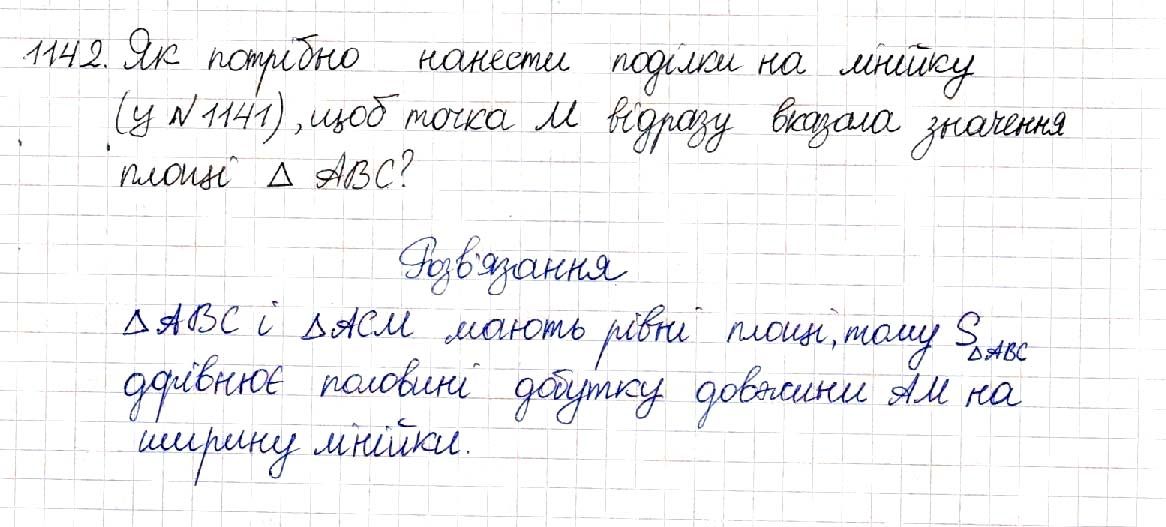 1142. Як потрібно нанести поділки на лінійку
(у №1141), щоб точка М відразу вказала значення
площі △ АВС?
Розв'язання
△АВС і △АСМ мають рівні площі, тому S△АВС
дорівнює половині добутку довжини АМ на
ширину лінійки.